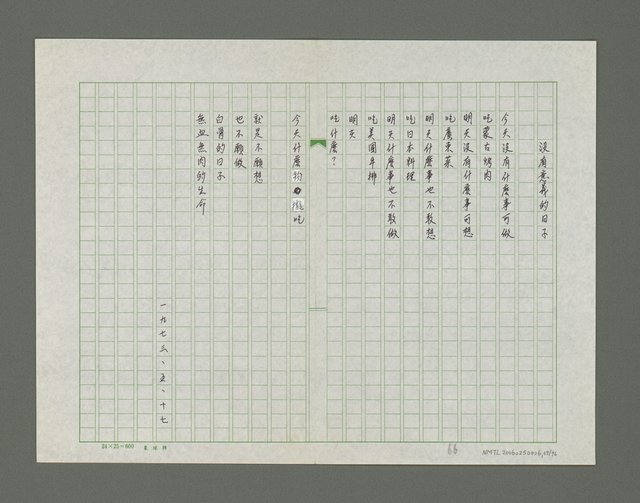 沒有意義的日子
今天沒有什麼事可做
吃蒙古烤肉
明天沒有什麼事可想
吃廣東菜
明天什麼事也不敢想
吃日本料理
明天什麼事也不敢做
吃美國牛排
明天
吃什麼？
今天什麼物攏吃
就是不願想
也不願做
白骨的日子
無血無肉的生命
一九七三、五、十七
24×25=600
66